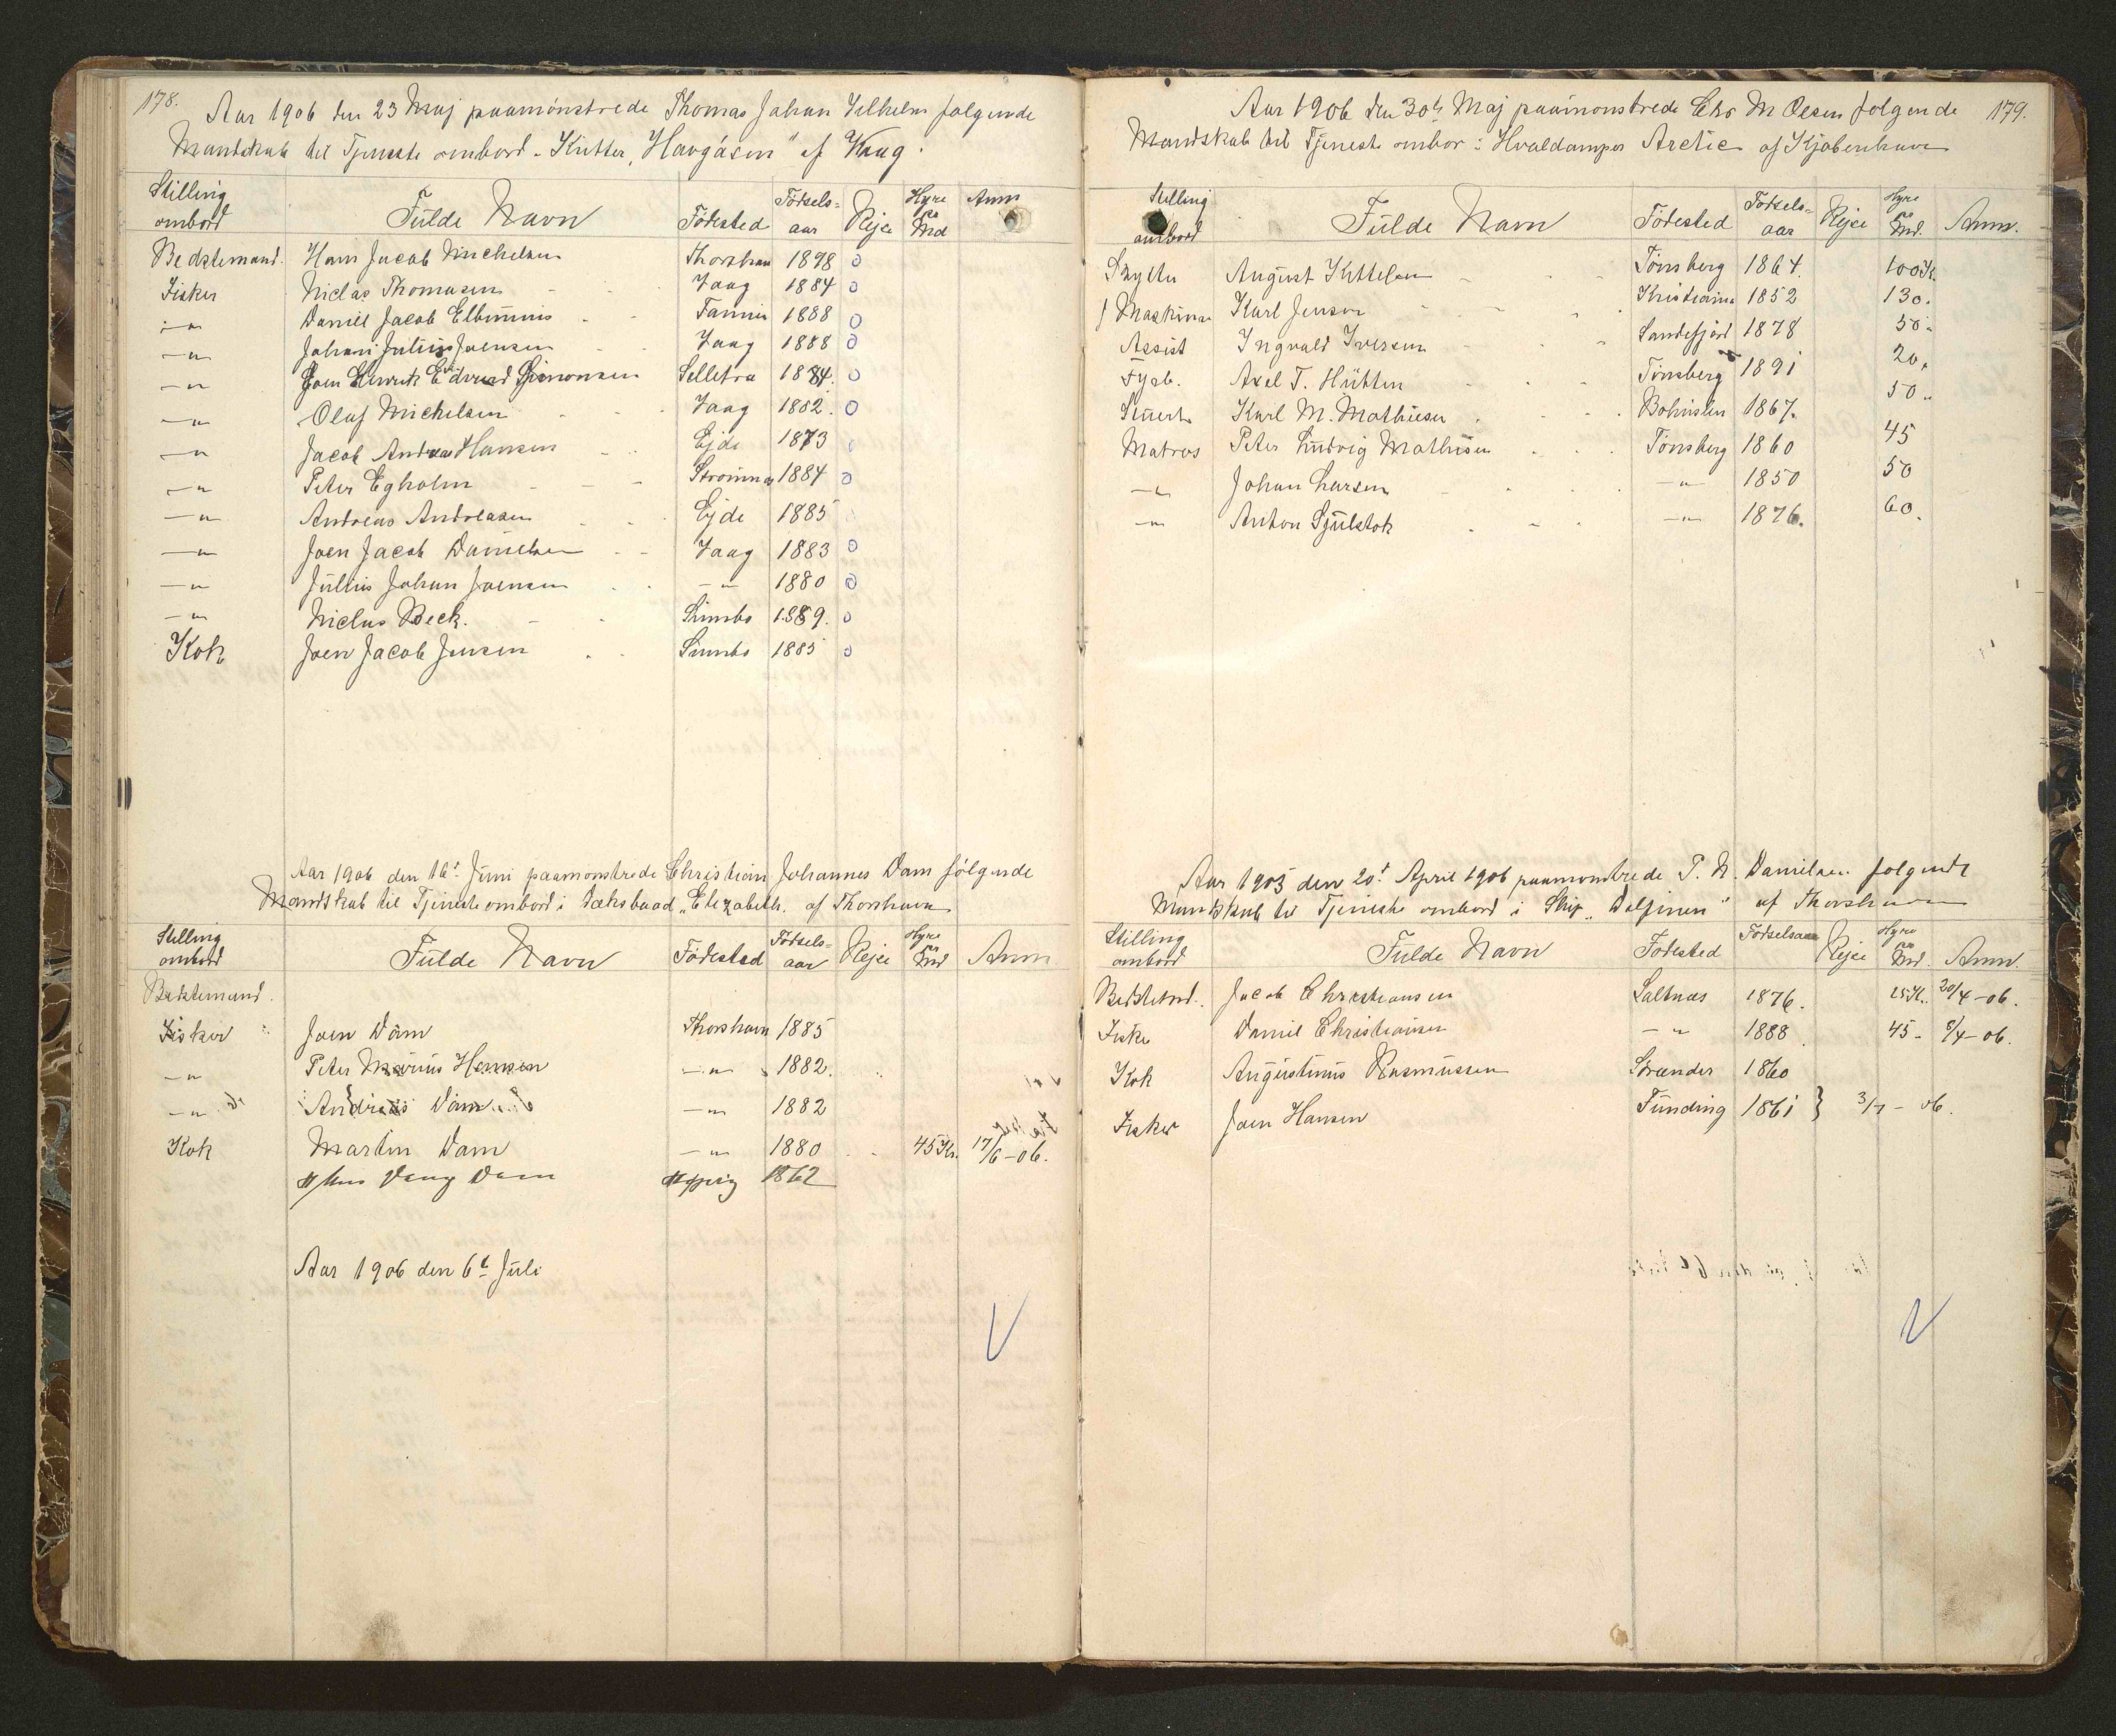 178.
Aar 1906 den 23 Maj paamönstrede Thomas Johan Vilhelm følgende
Mandskab til Tjeneste ombord - Kutter "Havgásin" af Vaag.
Stilling ombord Fulde Navn Födested Födsels= aar Rejse Hyre pr Md Anm
Bedstemand. Hans Jacob Michelsen Thorshavn 1898 o
Fisker Niclas Thomasen Vaag 1884 o
-"- Daniel Jacob Famien 1888 o
-"- Johan Julius Joensen Vaag 1888 o
-"- Joen Edvard Simonsen Selletra 1884. o
-"- Olaf Michelsen Vaag 1882. o
-"- Jacob Andreas Hansen Ejde 1873
-"- Peter Egholm Strömnæs 1884 o
-"- Andreas Andreasen Ejde 1885
-"- Joen Jacob Danielsen Vaag 1883 o
-"- Julius Johan Joensen -"- 1880 o
-"- Niclas Beck. Sumbo 1889. o
Kok Joen Jacob Jensen Sumbo 1885 o
Aar 1906 den 16d Juni paamonstrede Christian Johannes Dam følgende
Mandskab til Tjeneste ombord i Dæksbaad "Elizabeth. af Thorshavn
Stilling ombord Fulde Navn Födested Födsels= aar Rejse Hyre pr Md Anm
Bedstemand.
Fisker Joen Dam Thorshavn 1885
-"- Peter Marius Hansen -"- 1882.
-"- Andreas Dam -"- 1882
Kok Martin Dam -"- 1880 45 Kr. 17/6-06.
Dam 1862
Aar 1906 den 6d Juli
179.
Aar 1906 den 30d Maj paamonstrede Chr M Olsen følgende
Mandskab til Tjeneste ombor i Hvaldamper Arctic af Kjøbenhavn
Stilling ombord Fulde Navn Födested Födsels= aar Rejse Hyre pr Md. Anm.
Skytte August Kittelsen Tönsberg 1864. 100 Kr
1 Maskinm Karl Jenson Kristiania 1852 130.
Assist Ingvald Iversen Sandefjord 1878 50-
Fyrb. Axel T. Hütten Tönsberg 1891 20.
Stuert Karl M. Mathisen Bohuslen 1867. 50.
Matros Peter Ludvig Mathisen Tönsberg 1860 45
-"- Johan Larsen -"- 1850 50
-"- Anton Sjulstok -"- 1876. 60.
Aar 1905 den 20d April 1906 paamonstrede P. N. Danielsen følgende
Mandskab til Tjeneste ombord i Skip "Delfinen" af Thorshavn
Stilling ombord Fulde Navn Födested Födselsaar Rejse Hyre pr Md. Anm.
Bedstemd. Jacob Christiansen Saltnæs 1876. 25 Kr. 20/4-06.
Fisker Daniel Christiansen -"- 1888. 45- 8/4-06.
Kok Augustinus Rasmussen Strænder 1860
Fisker Joen Hansen Funding 1861 } 3/7-06.